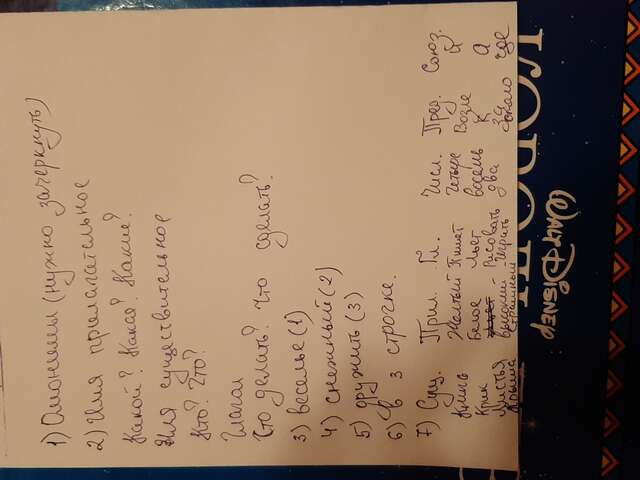 1) Омонимы (нужно зачеркнуть)
2) Имя прилагательное
Какой? Какая? Какие?
Имя существительное
Кто? Что?
Глагол
Что делать? Что сделать?
3) веселье (1)
4) снежный (2)
5) дружить (3)
6) в 3 строчке.
7) Сущ. Прил. Гл. Числ. Пред. Союз.
Желтый Пишет Четыре Возле и
Крик Белое Льет восемь к а
Листья высокий - Рисовать два за где
Крыша Страшный Играть около
WALT DISNEY